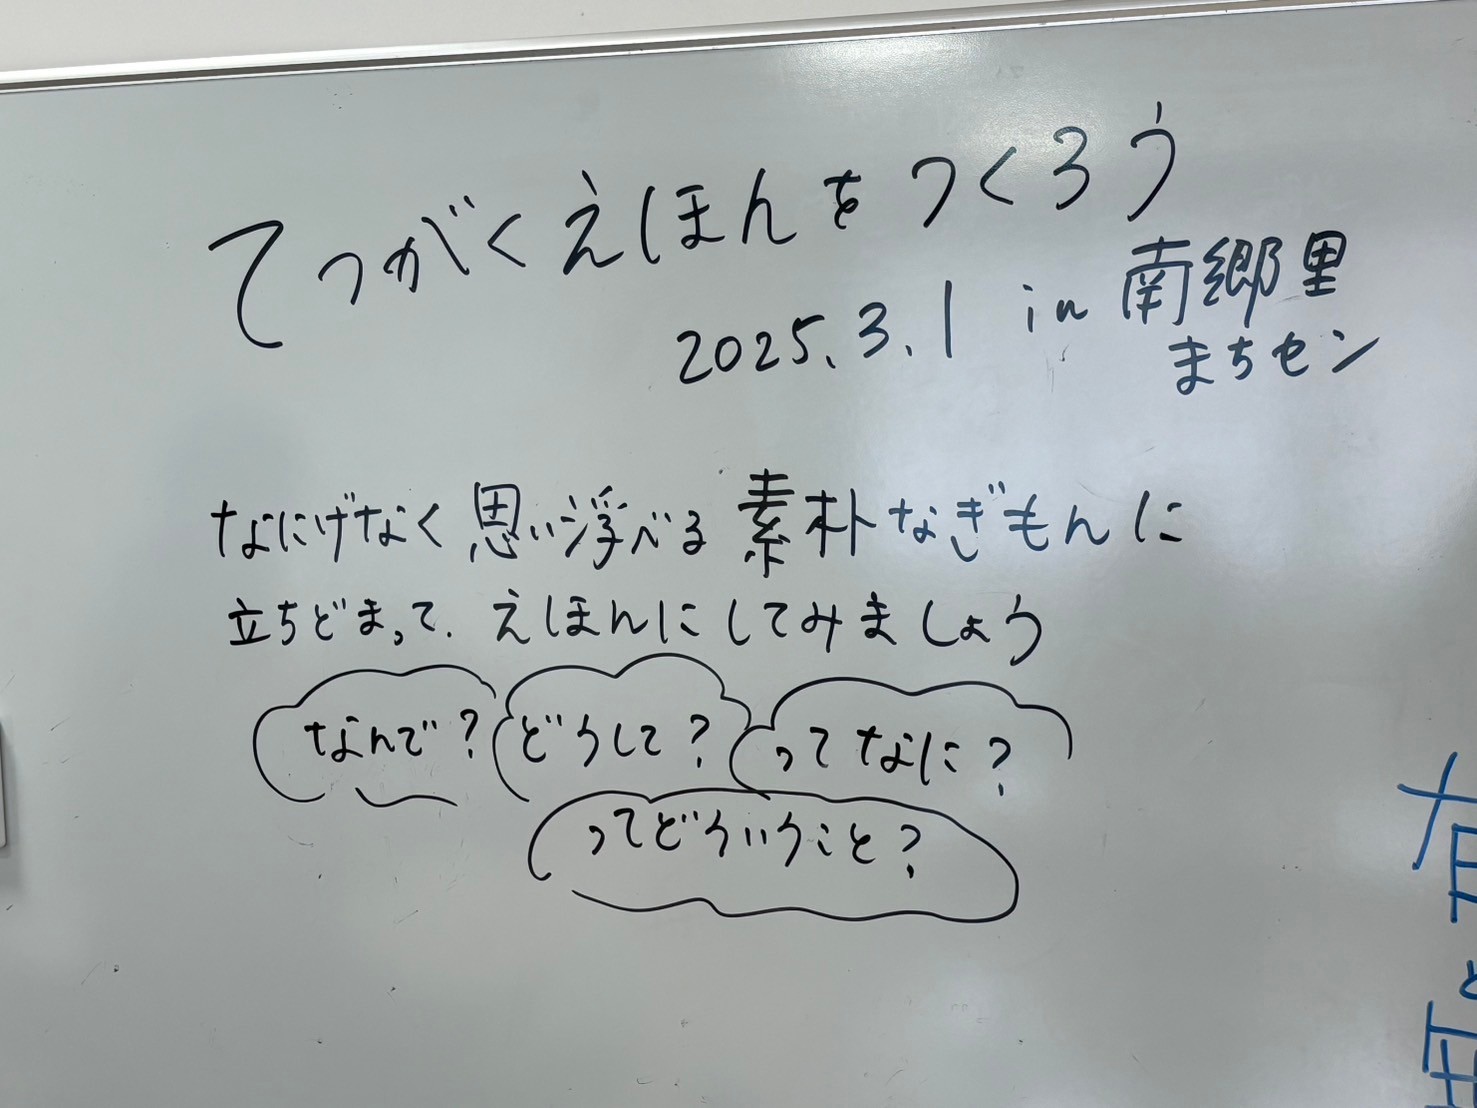 てつがくえほんをつくろう
2025.3.1 in 南郷里
まちセン
なにげなく思い浮べる素朴なぎもんに
立ちどまって、えほんにしてみましょう
なんで?
どうして?
ってなに?
ってどういうこと?